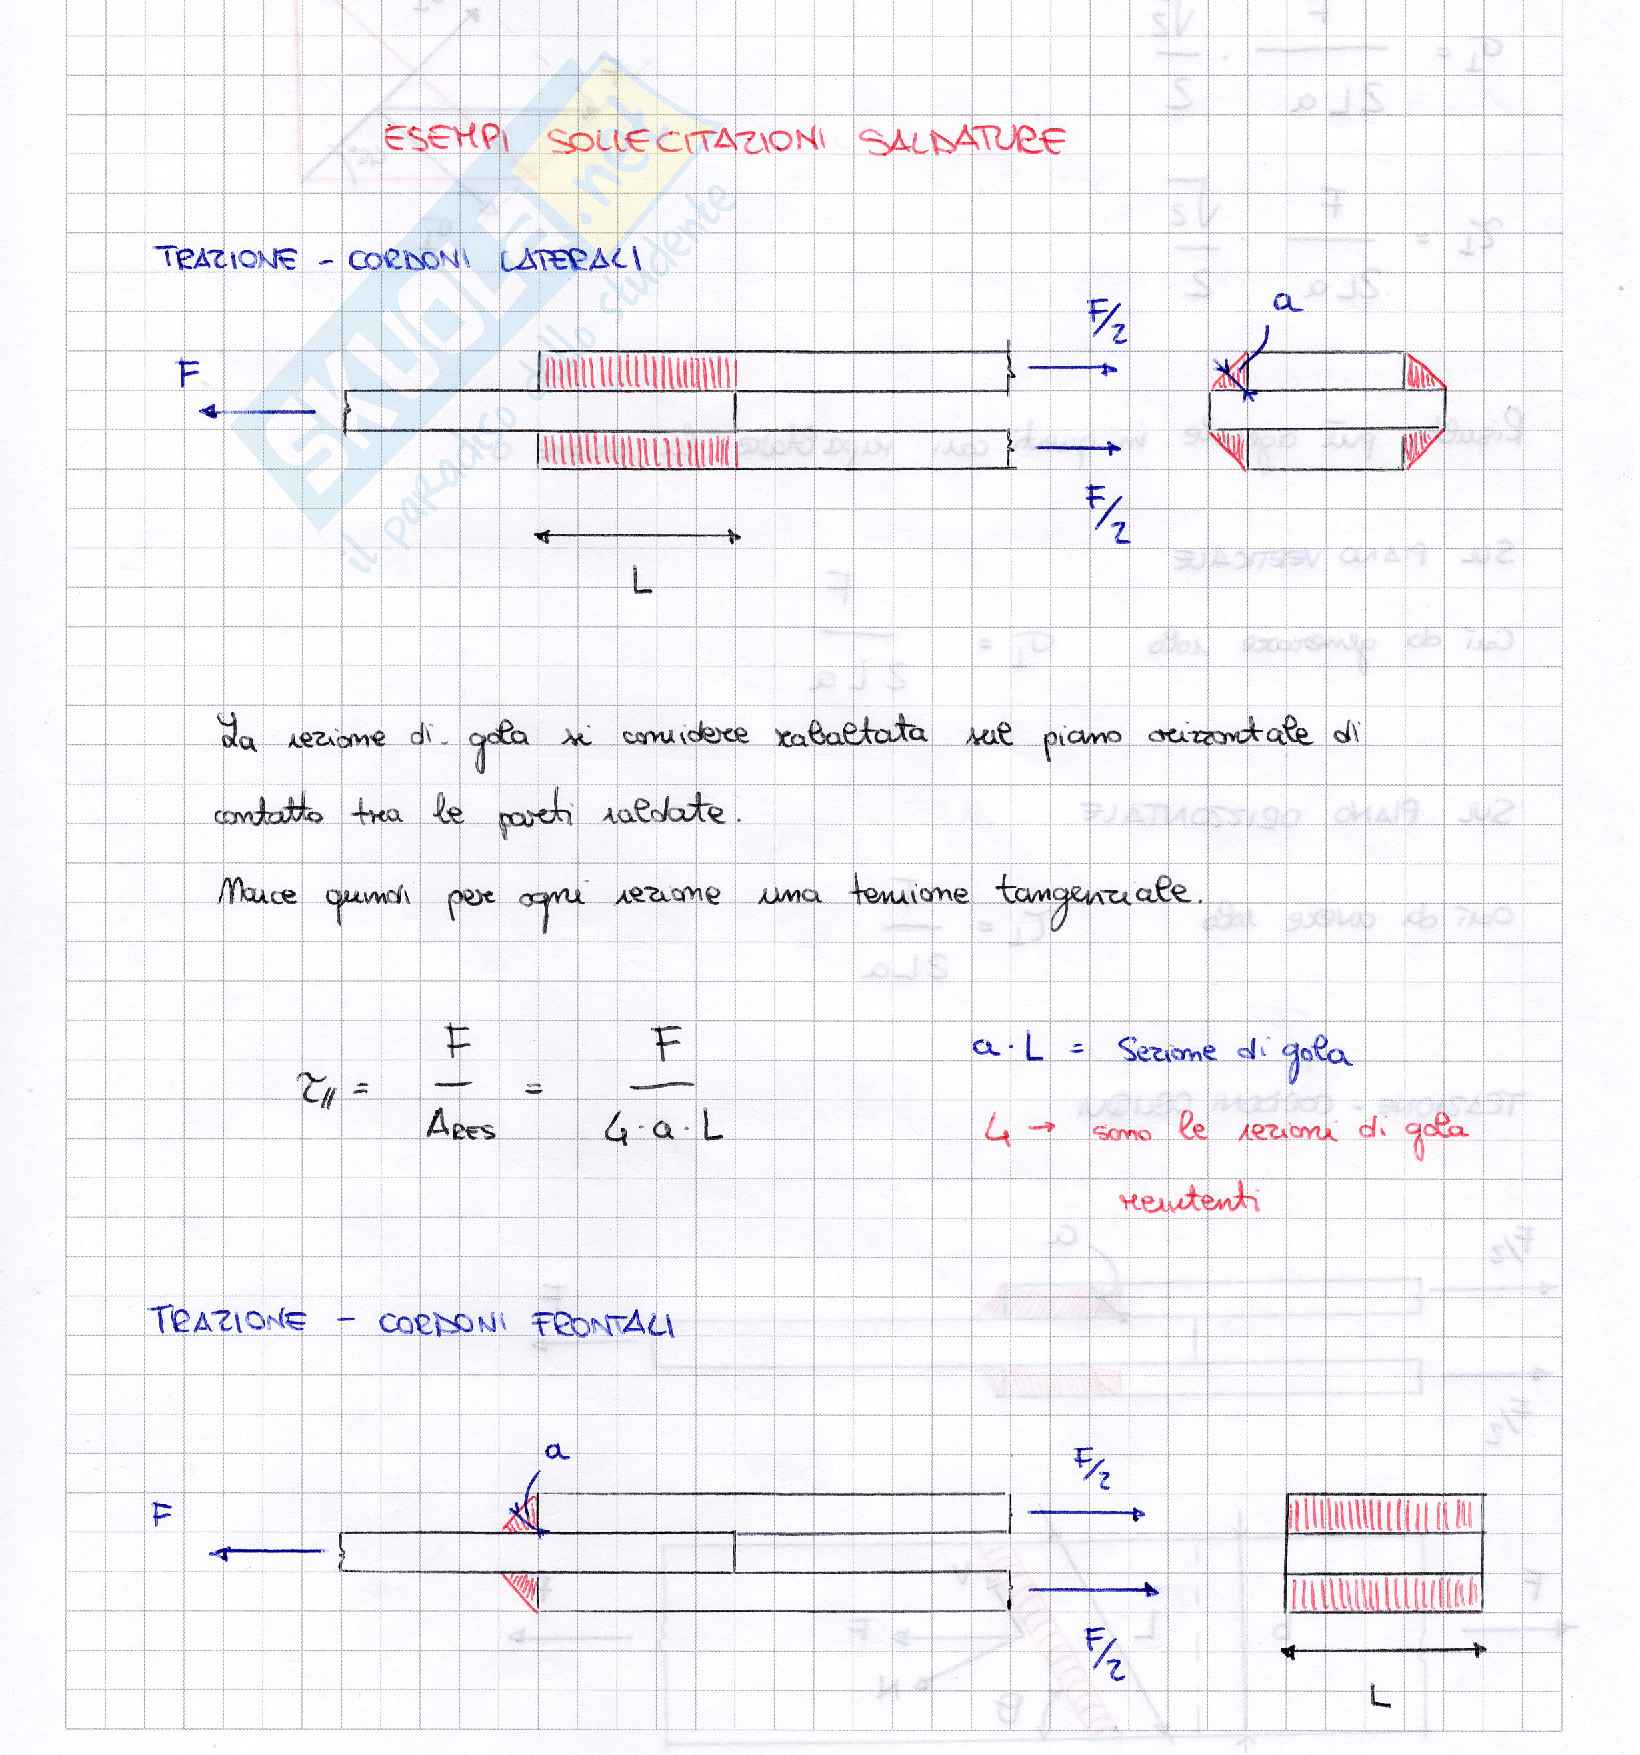 ESEMPI SOLLECITAZIONI SALDATURE
TRAZIONE - CORDONI LATERALI
F
F/2
a
F/2
L
La sezione di gola si considera rabaltata sul piano orizzontale di
contatto tra le parti saldate.
Nasce quindi per ogni sezione una tensione tangenziale.
τ// = F/ARES = F/4·a·L
a·L = Sezione di gola
4 → sono le sezioni di gola
resistenti
TRAZIONE - CORDONI FRONTALI
a
F
F/2
F/2
L
SKUOLA.net
il paradiso dello studente